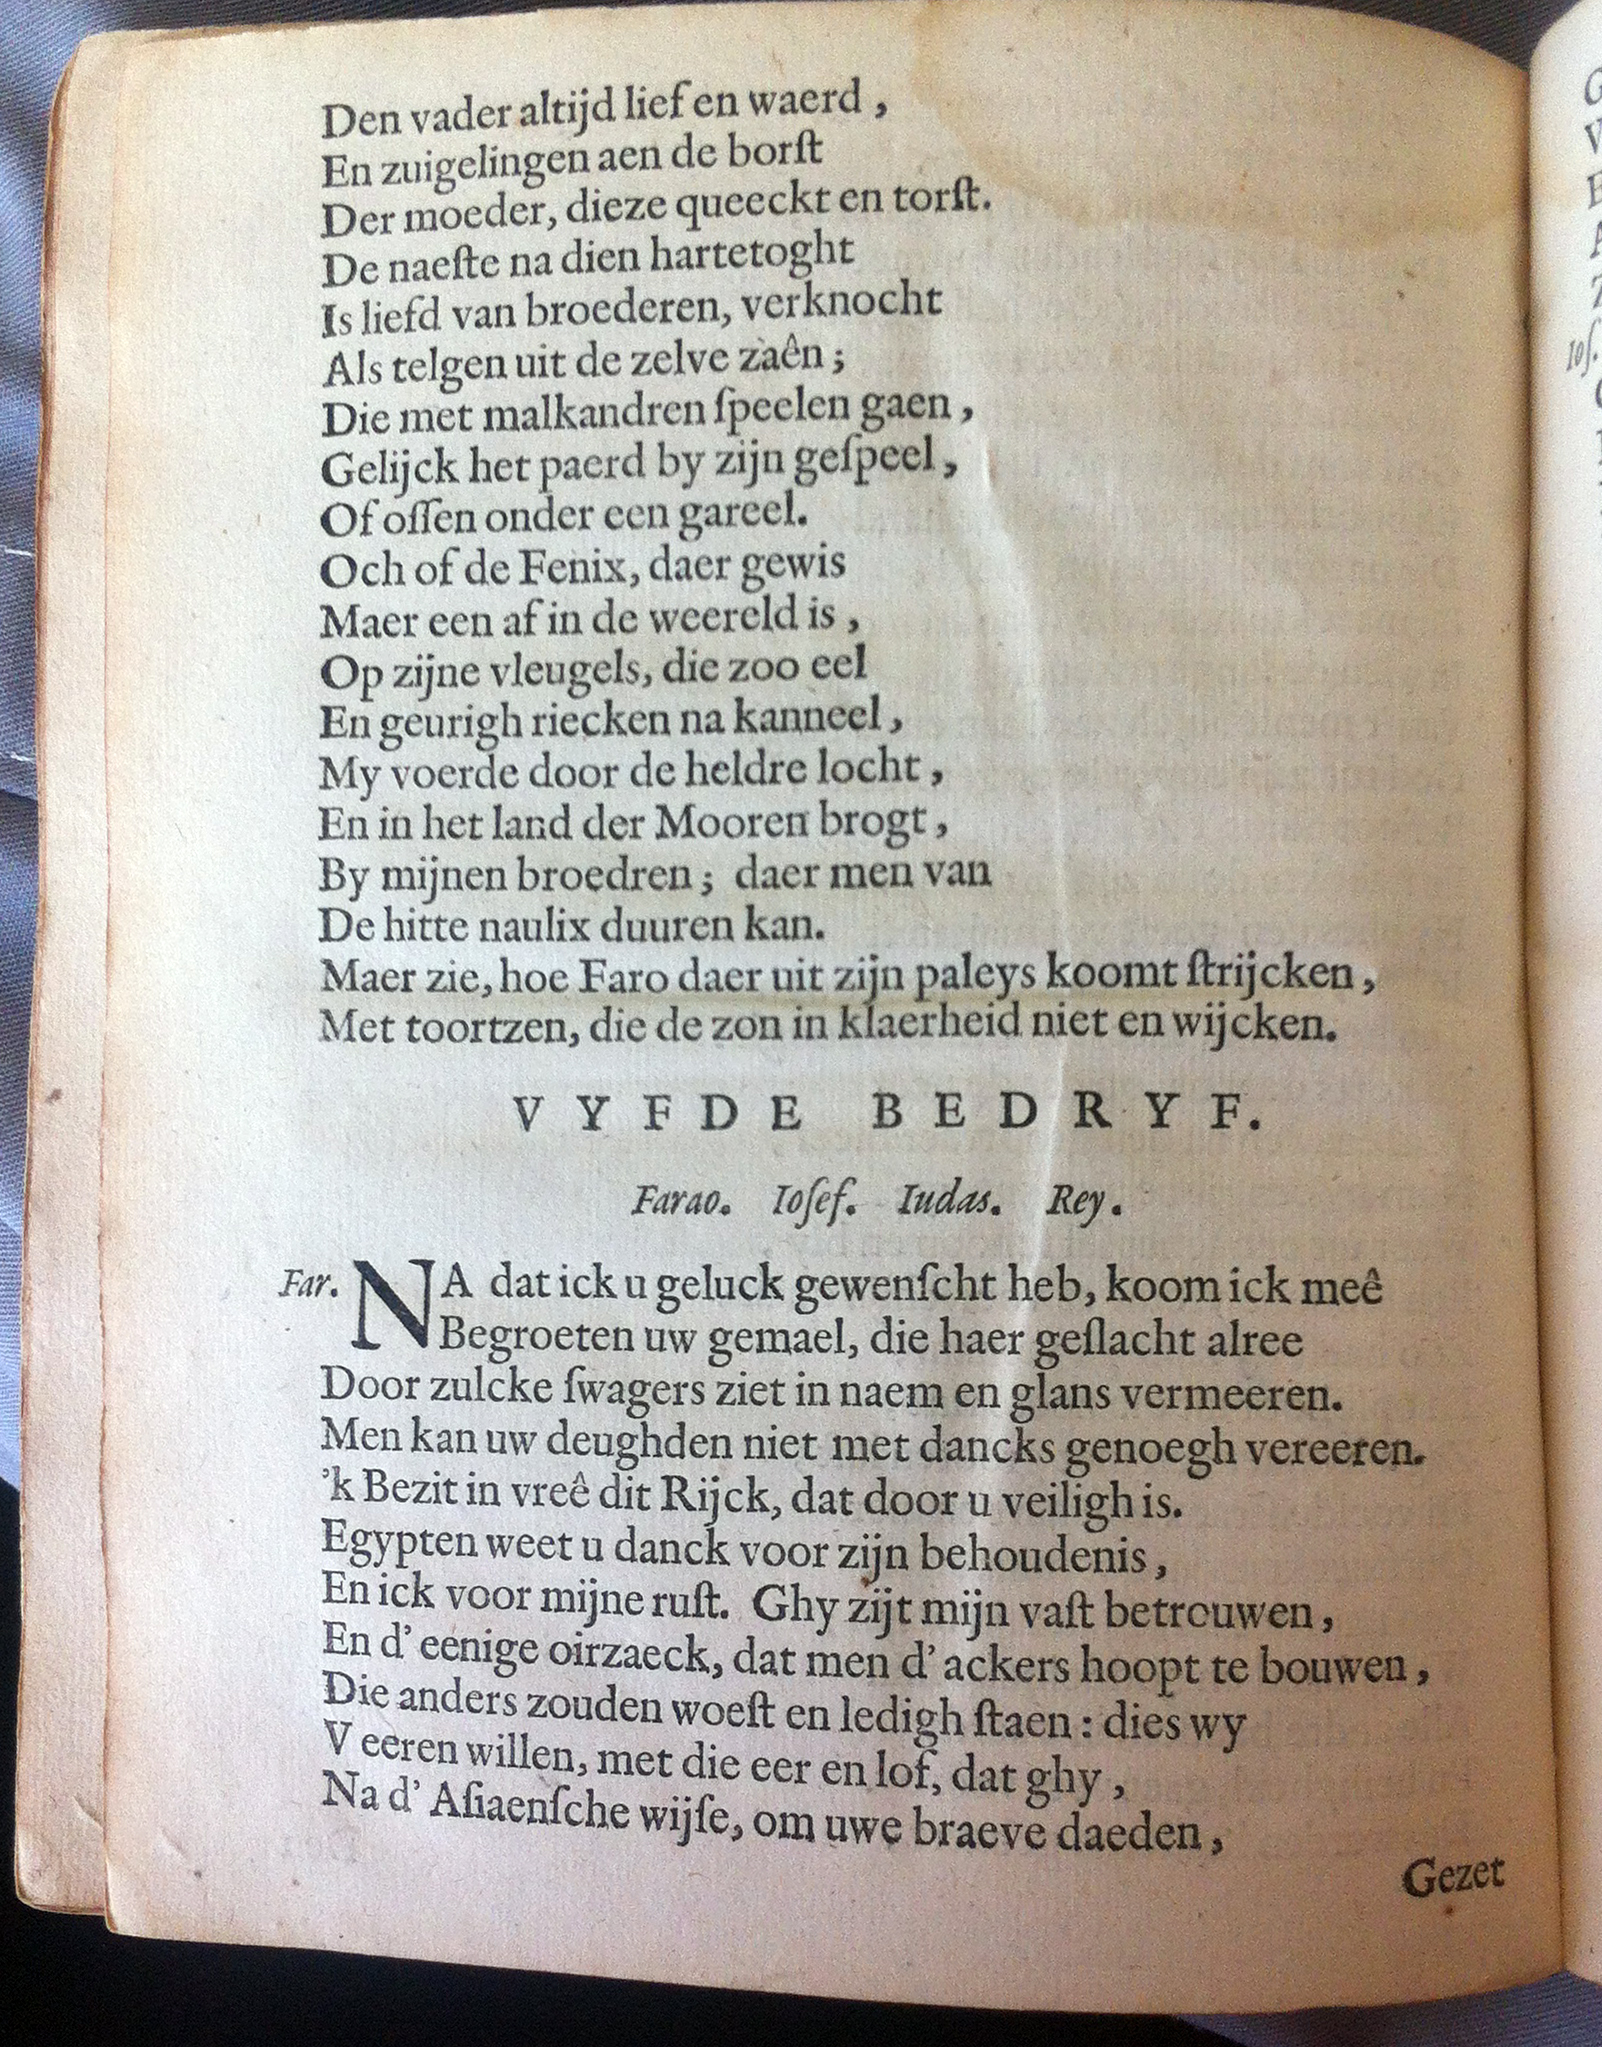 Den vader altijd lief en waerd,
En zuigelingen aen de borſt
Der moeder, dieze queeckt en torſt.
De naeſte na dien hartetoght
Is liefd van broederen, verknocht
Als telgen uit de zelve zaên;
Die met malkandren ſpeelen gaen,
Gelijck het paerd by zijn geſpeel,
Of oſſen onder een gareel.
Och of de Fenix, daer gewis
Maer een af in de weereld is,
Op zijne vleugels, die zoo eel
En geurigh riecken na kanneel,
My voerde door de heldre locht,
En in het land der Mooren brogt,
By mijnen broedren; daer men van
De hitte naulix duuren kan.
Maer zie, hoe Faro daer uit zijn paleys koomt ſtrijcken,
Met toortzen, die de zon in klaerheid niet en wijcken.
VYFDE BEDRYF.
Farao. Ioſef. Iudas. Rey.
Far. NA dat ick u geluck gewenſcht heb, koom ick meê
Begroeten uw gemael, die haer geſlacht alree
Door zulcke ſwagers ziet in naem en glans vermeeren.
Men kan uw deughden niet met dancks genoegh vereeren.
'k Bezit in vreê dit Rijck, dat door u veiligh is.
Egypten weet u danck voor zijn behoudenis,
En ick voor mijne ruſt. Ghy zijt mijn vaſt betrouwen,
En d' eenige oirzaeck, dat men d' ackers hoopt te bouwen,
Die anders zouden woeſt en ledigh ſtaen: dies wy
V eeren willen, met die eer en lof, dat ghy,
Na d' Aſiaenſche wijſe, om uwe braeve daeden,
Gezet
Ioſ.